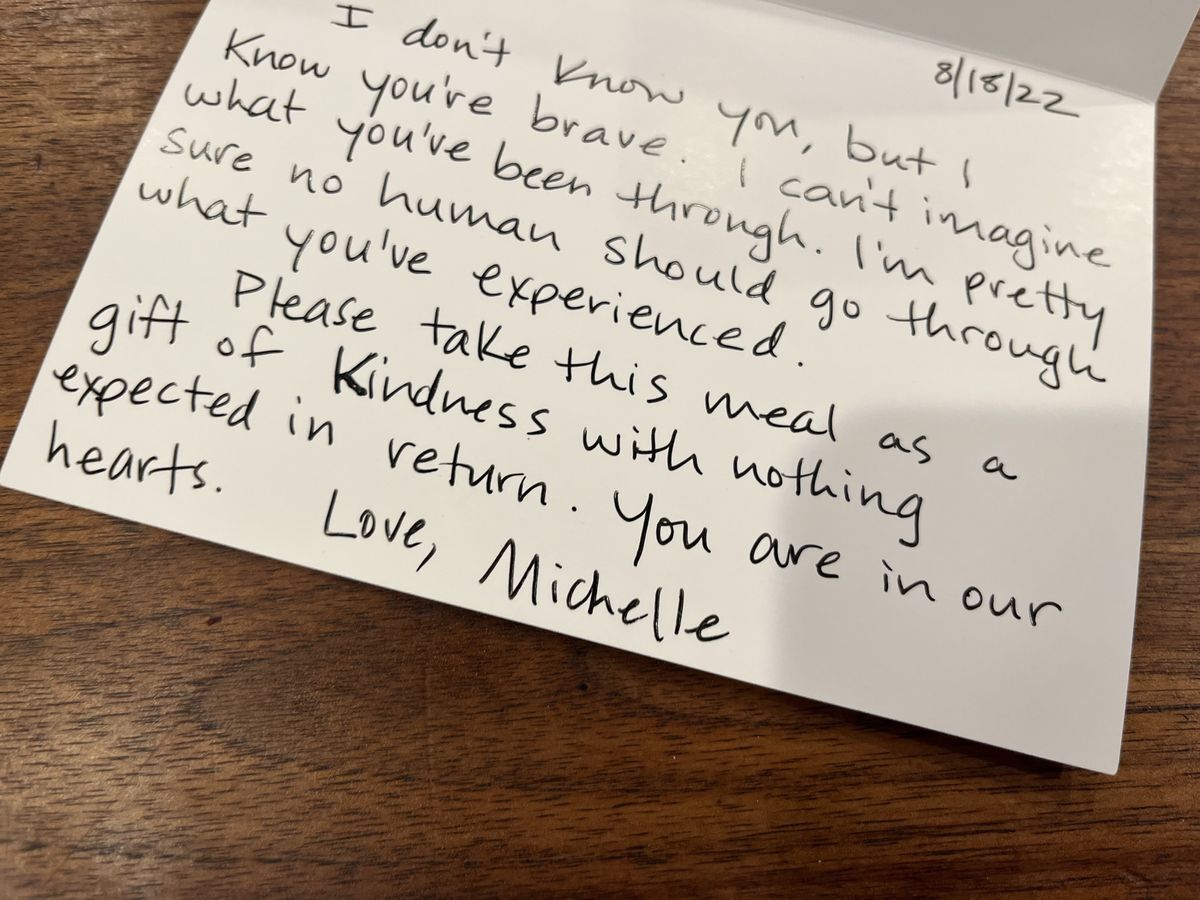 8/18/22
I don't know you, but I
know you're brave. I can't imagine
what you've been through. I'm pretty
sure no human should go through
what you've experienced.
Please take this meal as a
gift of kindness with nothing
expected in return. You are in our
hearts.
Love, Michelle